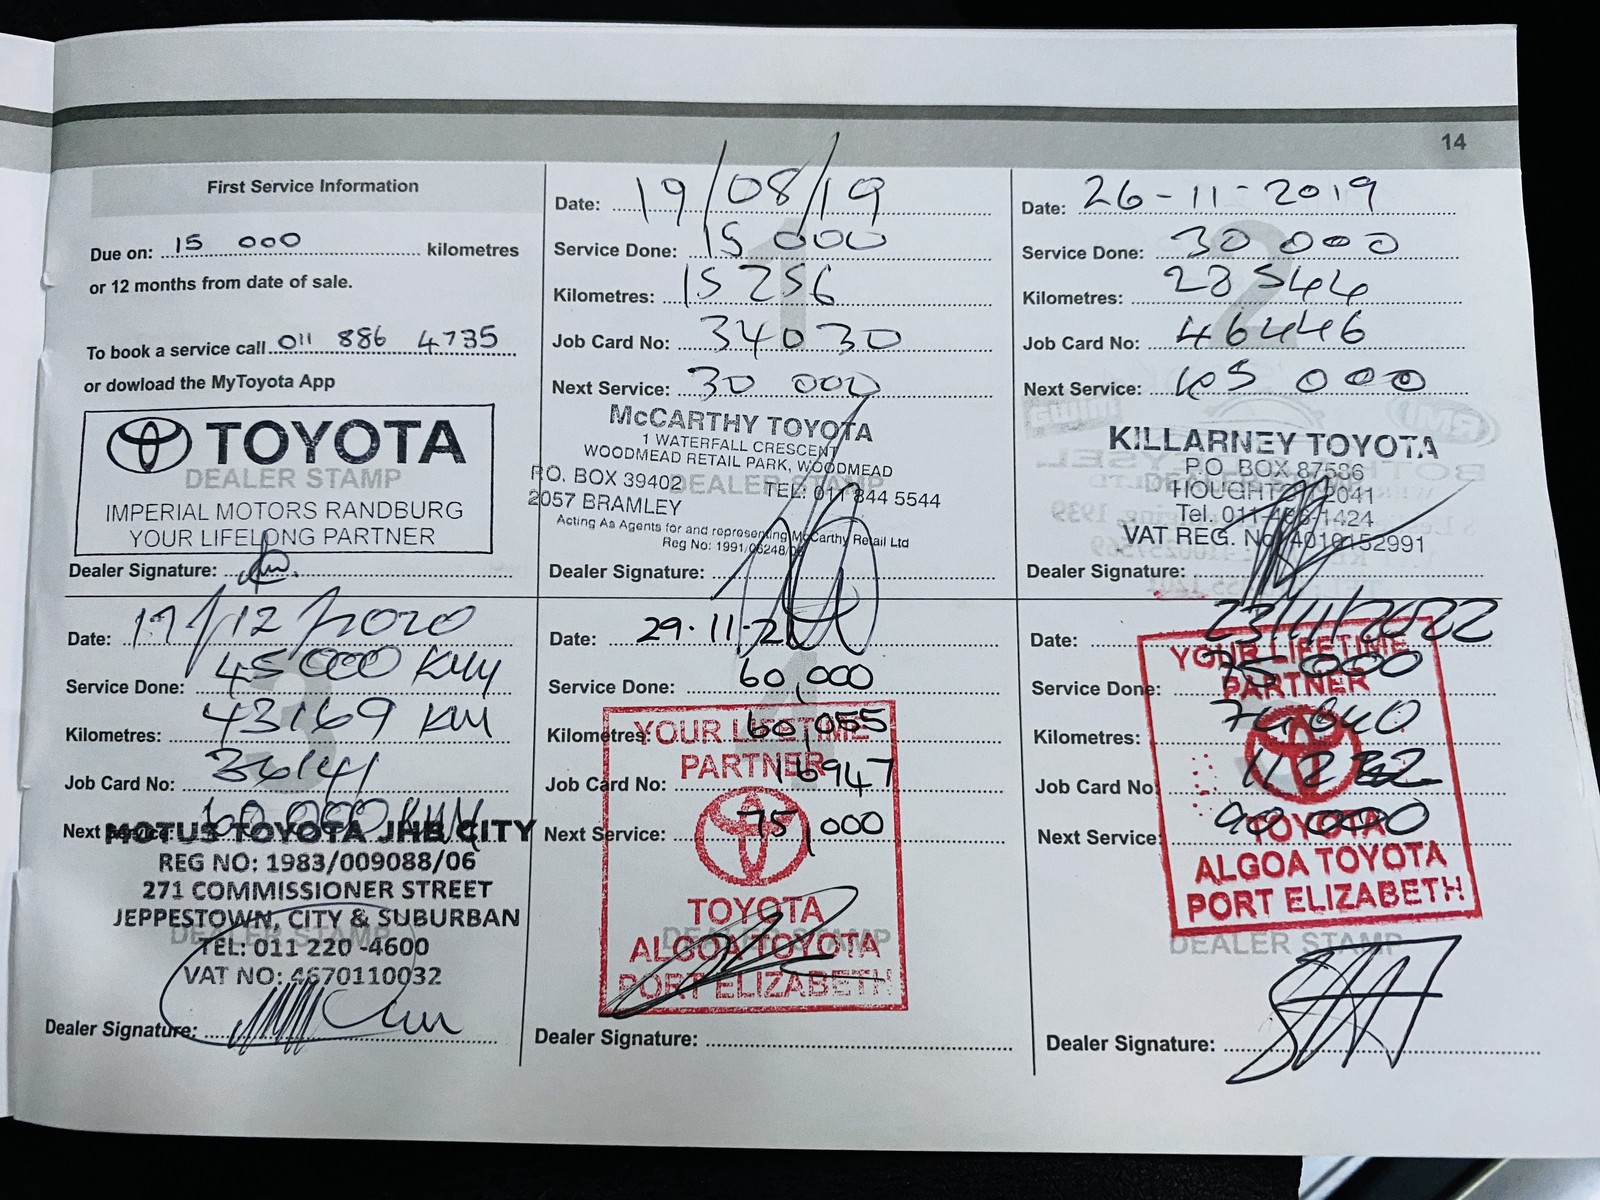 14
First Service Information
Due on: 15 000 kilometres
or 12 months from date of sale.
To book a service call 011 886 4735
or dowload the MyToyota App
TOYOTA
DEALER STAMP
IMPERIAL MOTORS RANDBURG
YOUR LIFELONG PARTNER
Dealer Signature:
1
Date: 19/08/19
Service Done: 15 000
Kilometres: 15 256
Job Card No: 34030
Next Service: 30 000
McCARTHY TOYOTA
1 WATERFALL CRESCENT
WOODMEAD RETAIL PARK, WOODMEAD
P.O. BOX 39402
DEALER STAMP
TEL: 011 844 5544
2057 BRAMLEY
Acting As Agents for and representing McCarthy Retail Ltd
Reg No: 1991/06248/
Dealer Signature:
2
Date: 26-11-2019
Service Done: 30 000
Kilometres: 28544
Job Card No: 46446
Next Service: 000
KILLARNEY TOYOTA
P.O. BOX 87586
HOUGHTON 2041
Tel. 011- -1424
VAT REG. No: 4010152991
Dealer Signature:
3
Date: /12/2020
Service Done: 45 000 KM
Kilometres: 43169 KM
Job Card No: 36141
Next Service: 60 000 KM
MOTUS TOYOTA JHB CITY
REG NO: 1983/009088/06
271 COMMISSIONER STREET
JEPPESTOWN, CITY & SUBURBAN
DEALER STAMP
TEL: 011 220 -4600
VAT NO: 4670110032
Dealer Signature:
4
Date: 29.11.2
Service Done: 60,000
Kilometres: 60,055
Job Card No: 16947
Next Service: 75,000
YOUR LIFETIME
PARTNER
TOYOTA
ALGOA TOYOTA
DEALER STAMP
PORT ELIZABETH
Dealer Signature:
Date: 23/11/2022
Service Done: 75 000
Kilometres:
Job Card No
Next Service: 90 000
YOUR LIFETIME
PARTNER
TOYOTA
ALGOA TOYOTA
PORT ELIZABETH
DEALER STAMP
Dealer Signature: